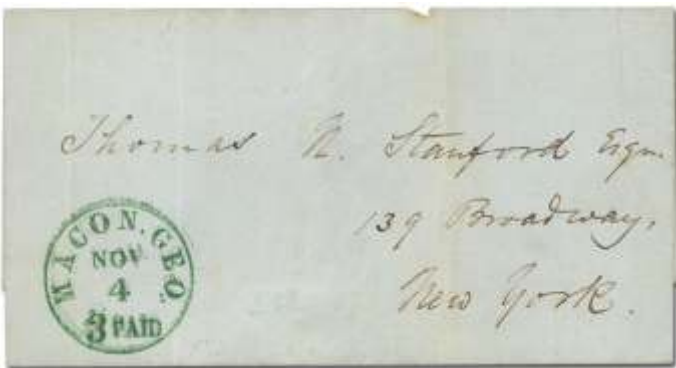 Thomas N. Stanford Esqr.
139 Broadway,
New York.
MACON. GEO.
NOV
4
3 PAID